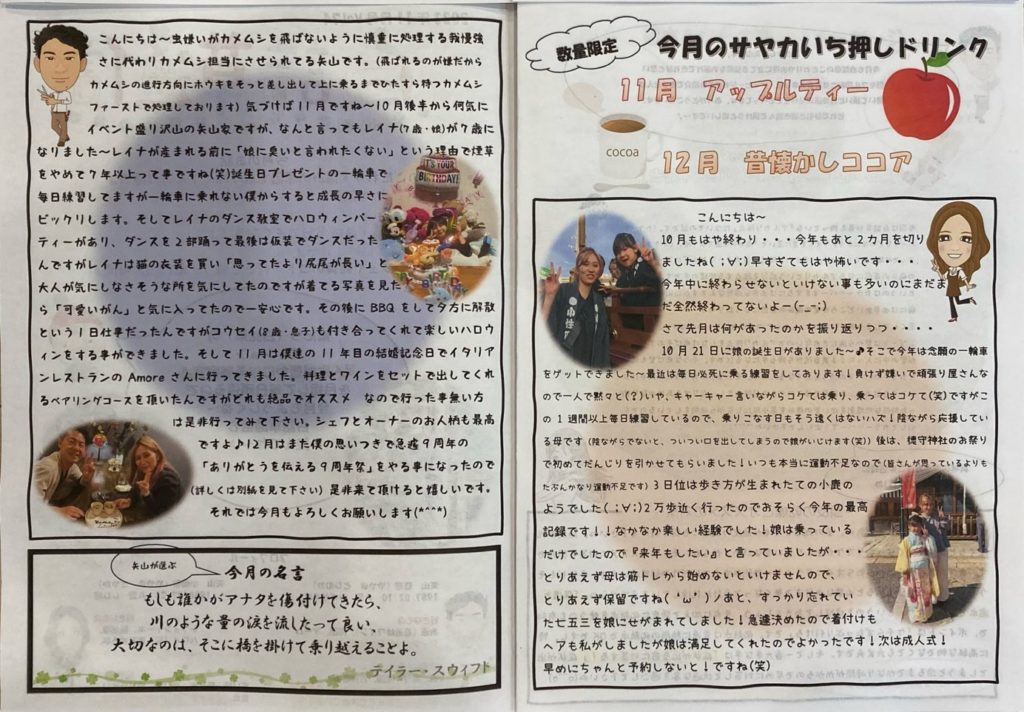 こんにちは～虫嫌いがカメムシを飛ばないように慎重に処理する我慢強
さに代わりカメムシ担当にさせられてる矢山です。(飛ばれるのが嫌だから
カメムシの進行方向にホウキをそっと差し出して上に乗るまでひたすら待つカメムシ
ファーストで処理しております) 気づけば11月ですね～10月後半から何気に
イベント盛り沢山の矢山家ですが、なんと言ってもレイナ(7歳・娘)が7歳に
なりました～レイナが産まれる前に「娘に臭いと言われたくない」という理由で煙草
をやめて7年以上って事ですね(笑)誕生日プレゼントの一輪車で
毎日練習してますが一輪車に乗れない僕からすると成長の早さに
ビックリします。そしてレイナのダンス教室でハロウィンパー
ティーがあり、ダンスを2部踊って最後は仮装でダンスだった
んですがレイナは猫の衣装を買い「思ってたより尻尾が長い」と
大人が気にしなさそうな所を気にしてたのですが着てる写真を見た
ら「可愛いがん」と気に入ってたので一安心です。その後にBBQをして夕方に解散
という1日仕事だったんですがコウセイ(8歳・息子)も付き合ってくれて楽しいハロウ
ィンをする事ができました。そして11月は僕達の11年目の結婚記念日でイタリア
ンレストランのAmoreさんに行ってきました。料理とワインをセットで出してくれ
るペアリングコースを頂いたんですがどれも絶品でオススメ なので行った事無い方
は是非行ってみて下さい。シェフとオーナーのお人柄も最高
ですよ♪12月はまた僕の思いつきで急遽9周年の
「ありがとうを伝える9周年祭」をやる事になったので
(詳しくは別紙を見て下さい) 是非来て頂けると嬉しいです。
それでは今月もよろしくお願いします(*^^*)
IT'S YOUR
BIRTHDAY!
矢山が選ぶ
今月の名言
もしも誰かがアナタを傷付けてきたら、
川のような量の涙を流したって良い、
大切なのは、そこに橋を掛けて乗り越えることよ。
テイラー・スウィフト
数量限定
今月のサヤカいち押しドリンク
11月 アップルティー
cocoa
12月 昔懐かしココア
こんにちは～
10月もはや終わり・・・今年もあと2カ月を切り
ましたね( ;∀;)早すぎてもはや怖いです・・・
今年中に終わらせないといけない事も多いのにまだま
だ全然終わってないよー(-_-;)
さて先月は何があったのかを振り返りつつ・・・・
10月21日に娘の誕生日がありました～♪そこで今年は念願の一輪車
をゲットできました～最近は毎日必死に乗る練習をしております！負けず嫌いで頑張り屋さんな
ので一人で黙々と(?)いや、キャーキャー言いながらコケては乗り、乗ってはコケて(笑)ですがこ
の1週間以上毎日練習しているので、乗りこなす日もそう遠くはないハズ！陰ながら応援してい
る母です(陰ながらでないと、ついつい口を出してしまうので娘がいじけます(笑)) 後は、徳守神社のお祭り
で初めてだんじりを引かせてもらいました！いつも本当に運動不足なので(皆さんが思っているよりも
たぶんかなり運動不足です) 3日位は歩き方が生まれたての小鹿の
ようでした( ;∀;)2万歩近く行ったのでおそらく今年の最高
記録です！！なかなか楽しい経験でした！娘は乗っている
だけでしたので『来年もしたい』と言っていましたが・・・
とりあえず母は筋トレから始めないといけませんので、
とりあえず保留ですね( 'ω')ノあと、すっかり忘れてい
た七五三を娘にせがまれてしました！急遽決めたので着付けも
ヘアも私がしましたが娘は満足してくれたのでよかったです！次は成人式！
早めにちゃんと予約しないと！ですね(笑)